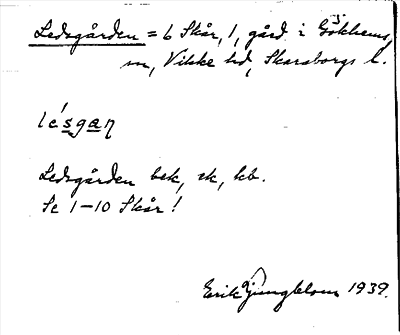 Ledsgården = 6 Skår, 1, gård i Gökhems
sn, Vilske hd, Skaraborgs l.
lésgaŋ
Ledsgården bek, sk, kb.
Se 1-10 Skår!
Erik Ljungblom 1939.